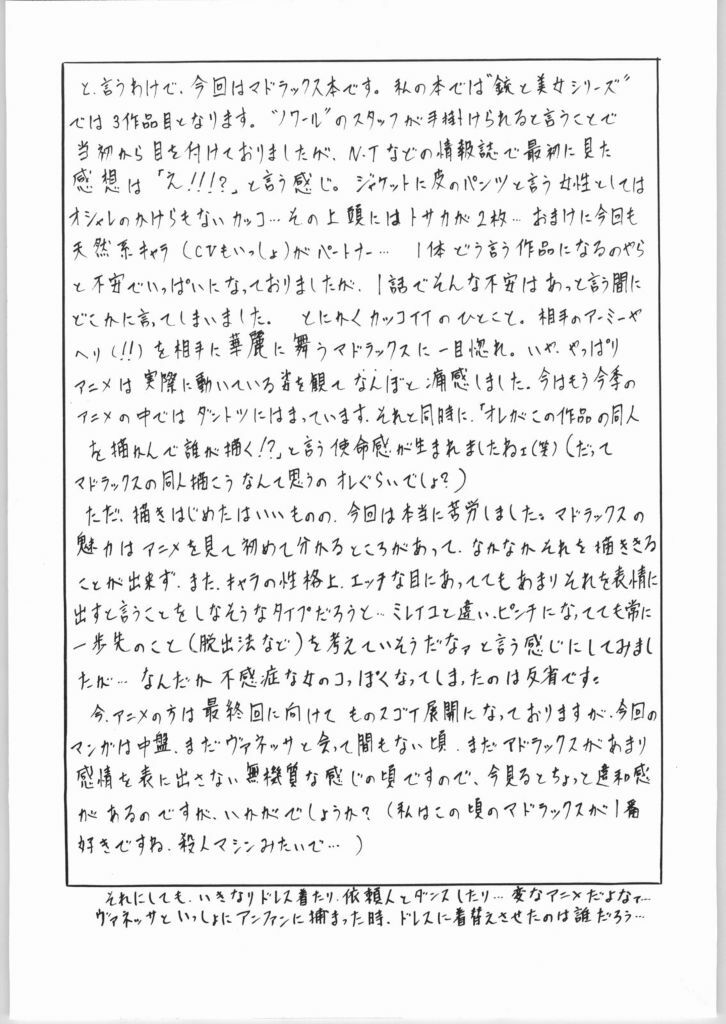 と、言うわけで、今回はマドラックス本です。私の本では"銃と美女シリーズ"
では3作品目となります。"ノワール"のスタッフが手掛けられると言うことで
当初から目を付けておりましたが、N・Tなどの情報誌で最初に見た
感想は「え!!!?」と言う感じ。ジャケットに皮のパンツと言う女性としては
オシャレのかけらもないカッコ…その上頭にはトサカが2枚…おまけに今回も
天然系キャラ(CVもいっしょ)がパートナー… 1体どう言う作品になるのやら
と不安でいっぱいになっておりましたが、1話でそんな不安はあっと言う間に
どこかに言ってしまいました。 とにかくカッコイイのひとこと。相手のアーミーや
ヘリ(!!)を相手に華麗に舞うマドラックスに一目惚れ。いや、やっぱり
アニメは実際に動いている姿を観てなんぼと痛感しました。今はもう今季の
アニメの中ではダントツにはまっています。それと同時に、「オレがこの作品の同人
を描かんで誰が描く!?」と言う使命感が生まれましたねェ(笑)(だって
マドラックスの同人描こうなんて思うのオレぐらいでしょ?)
ただ、描きはじめたはいいものの、今回は本当に苦労しました。マドラックスの
魅力はアニメを見て初めて分かるところがあって、なかなかそれを描ききる
ことが出来ず、また、キャラの性格上、エッチな目にあっててもあまりそれを表情に
出すと言うことをしなそうなタイプだろうと…ミレイユと違い、ピンチになってても常に
一歩先のこと(脱出法など)を考えていそうだなァと言う感じにしてみまし
たが…なんだか不感症な女のコっぽくなってしまったのは反省です。
今、アニメの方は最終回に向けてものスゴイ展開になっておりますが、今回の
マンガは中盤、まだヴァネッサと会って間もない頃、まだマドラックスがあまり
感情を表に出さない無機質な感じの頃ですので、今見るとちょっと違和感
があるのですが、いかがでしょうか?(私はこの頃のマドラックスが1番
好きですね、殺人マシンみたいで…)
それにしても、いきなりドレス着たり、依頼人とダンスしたり…変なアニメだよなァ…
ヴァネッサといっしょにアンファンに捕まった時、ドレスに着替えさせたのは誰だろう…